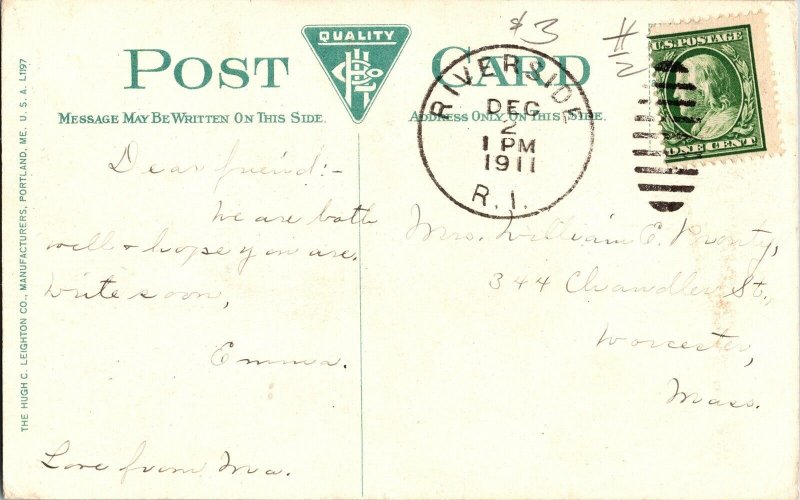 POST CARD
QUALITY
HCL Co
MESSAGE MAY BE WRITTEN ON THIS SIDE.
ADDRESS ONLY ON THIS SIDE.
THE HUGH C. LEIGHTON CO., MANUFACTURERS, PORTLAND, ME. U.S.A. L1197
$3
RIVERSIDE
DEC
2
1 PM
1911
R.I.
U.S. POSTAGE
ONE CENT
Dear friend:-
We are both
well & hope you are.
Write soon,
Emma.
Love from Ma.
Mrs. William E.
344 Chandler St.,
Worcester,
Mass.